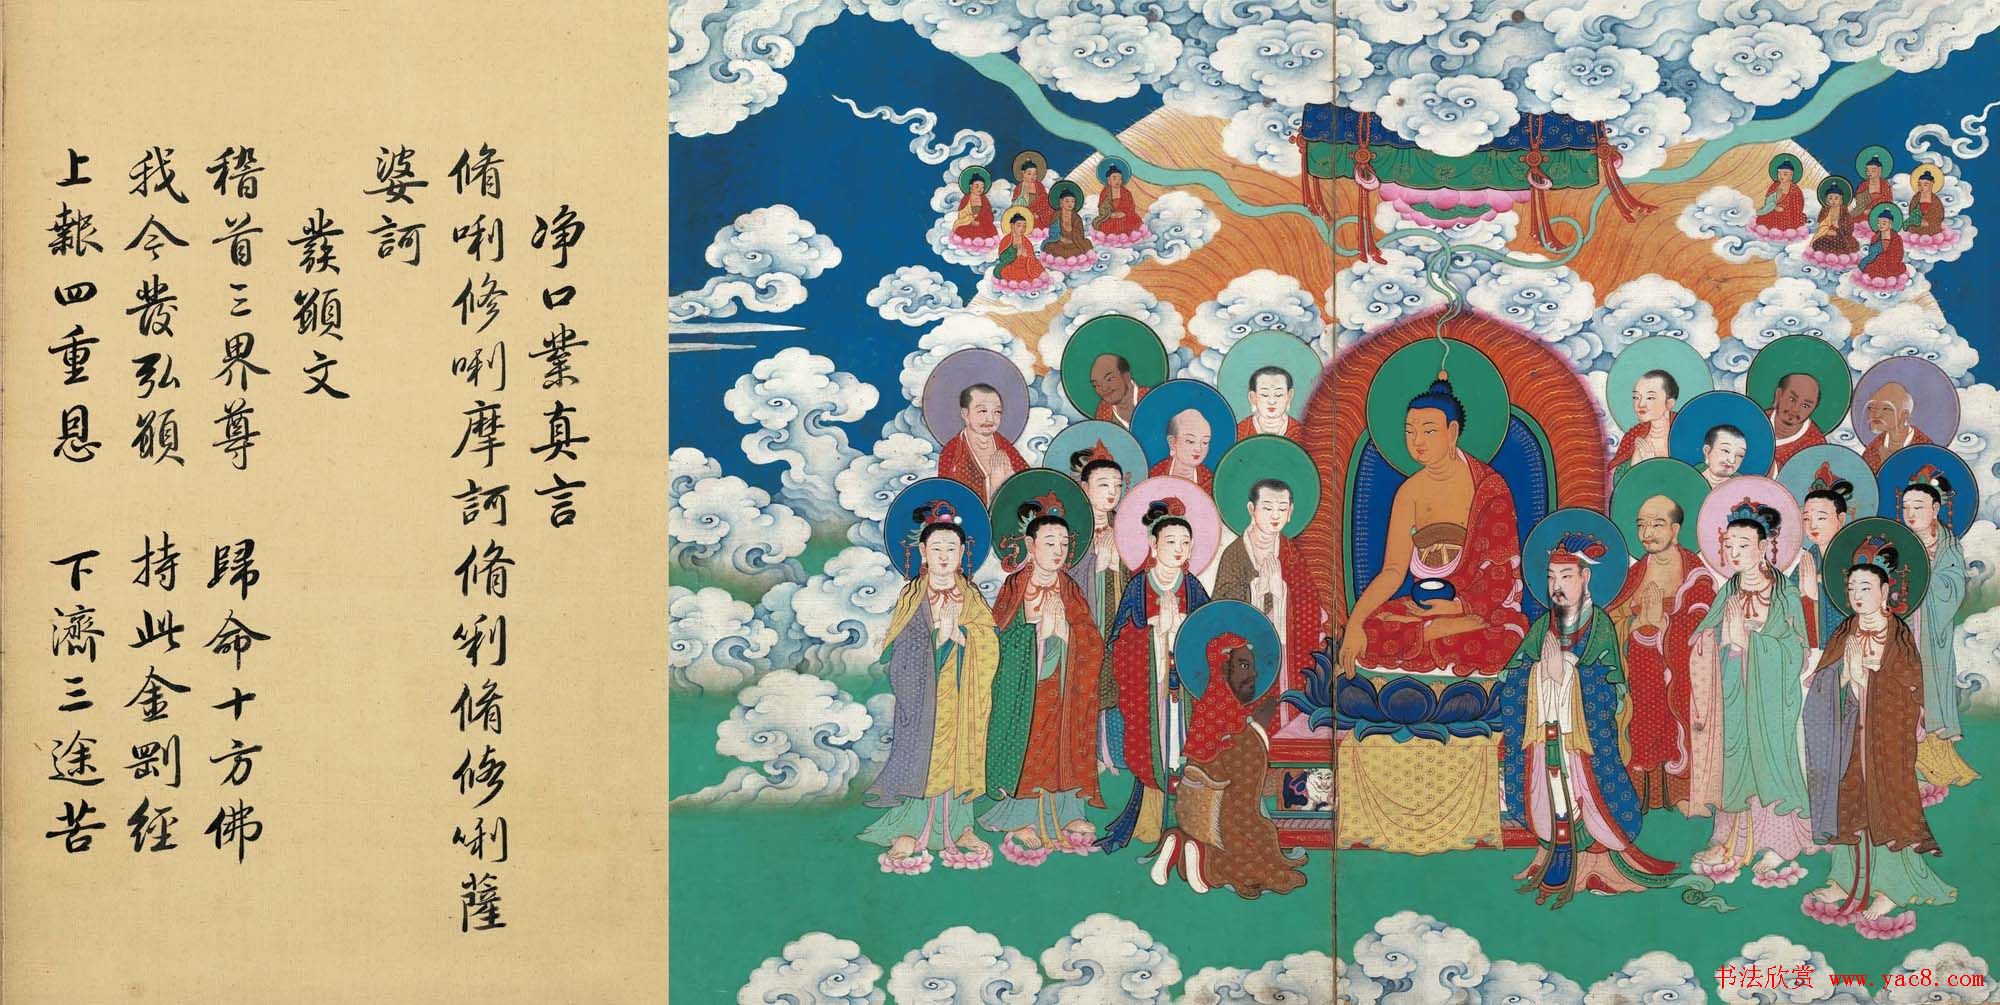 净口業真言
脩唎修唎摩訶脩唎脩脩唎薩
婆訶
發願文
稽首三界尊 歸命十方佛
我今發弘願 持此金剛經
上報四重恩 下濟三途苦
书法欣赏 www.yac8.com